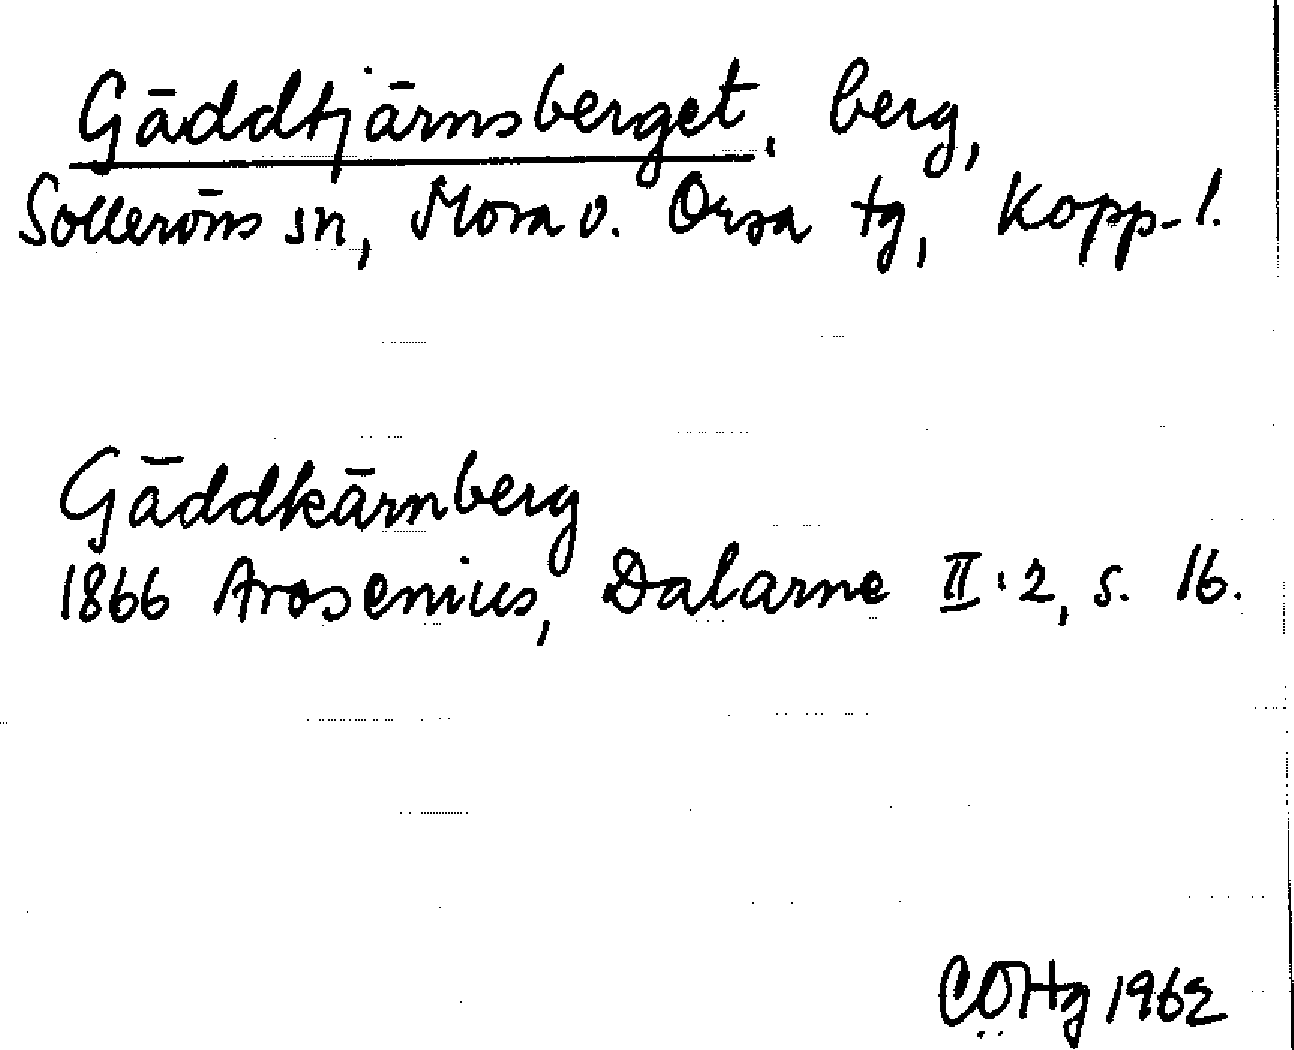 Gäddtjärnsberget, berg,
Solleröns sn, Mora o. Orsa tg, Kopp-l.
Gäddkärnberg
1866 Arosenius, Dalarne II:2, s. 16.
CÖHg 1962